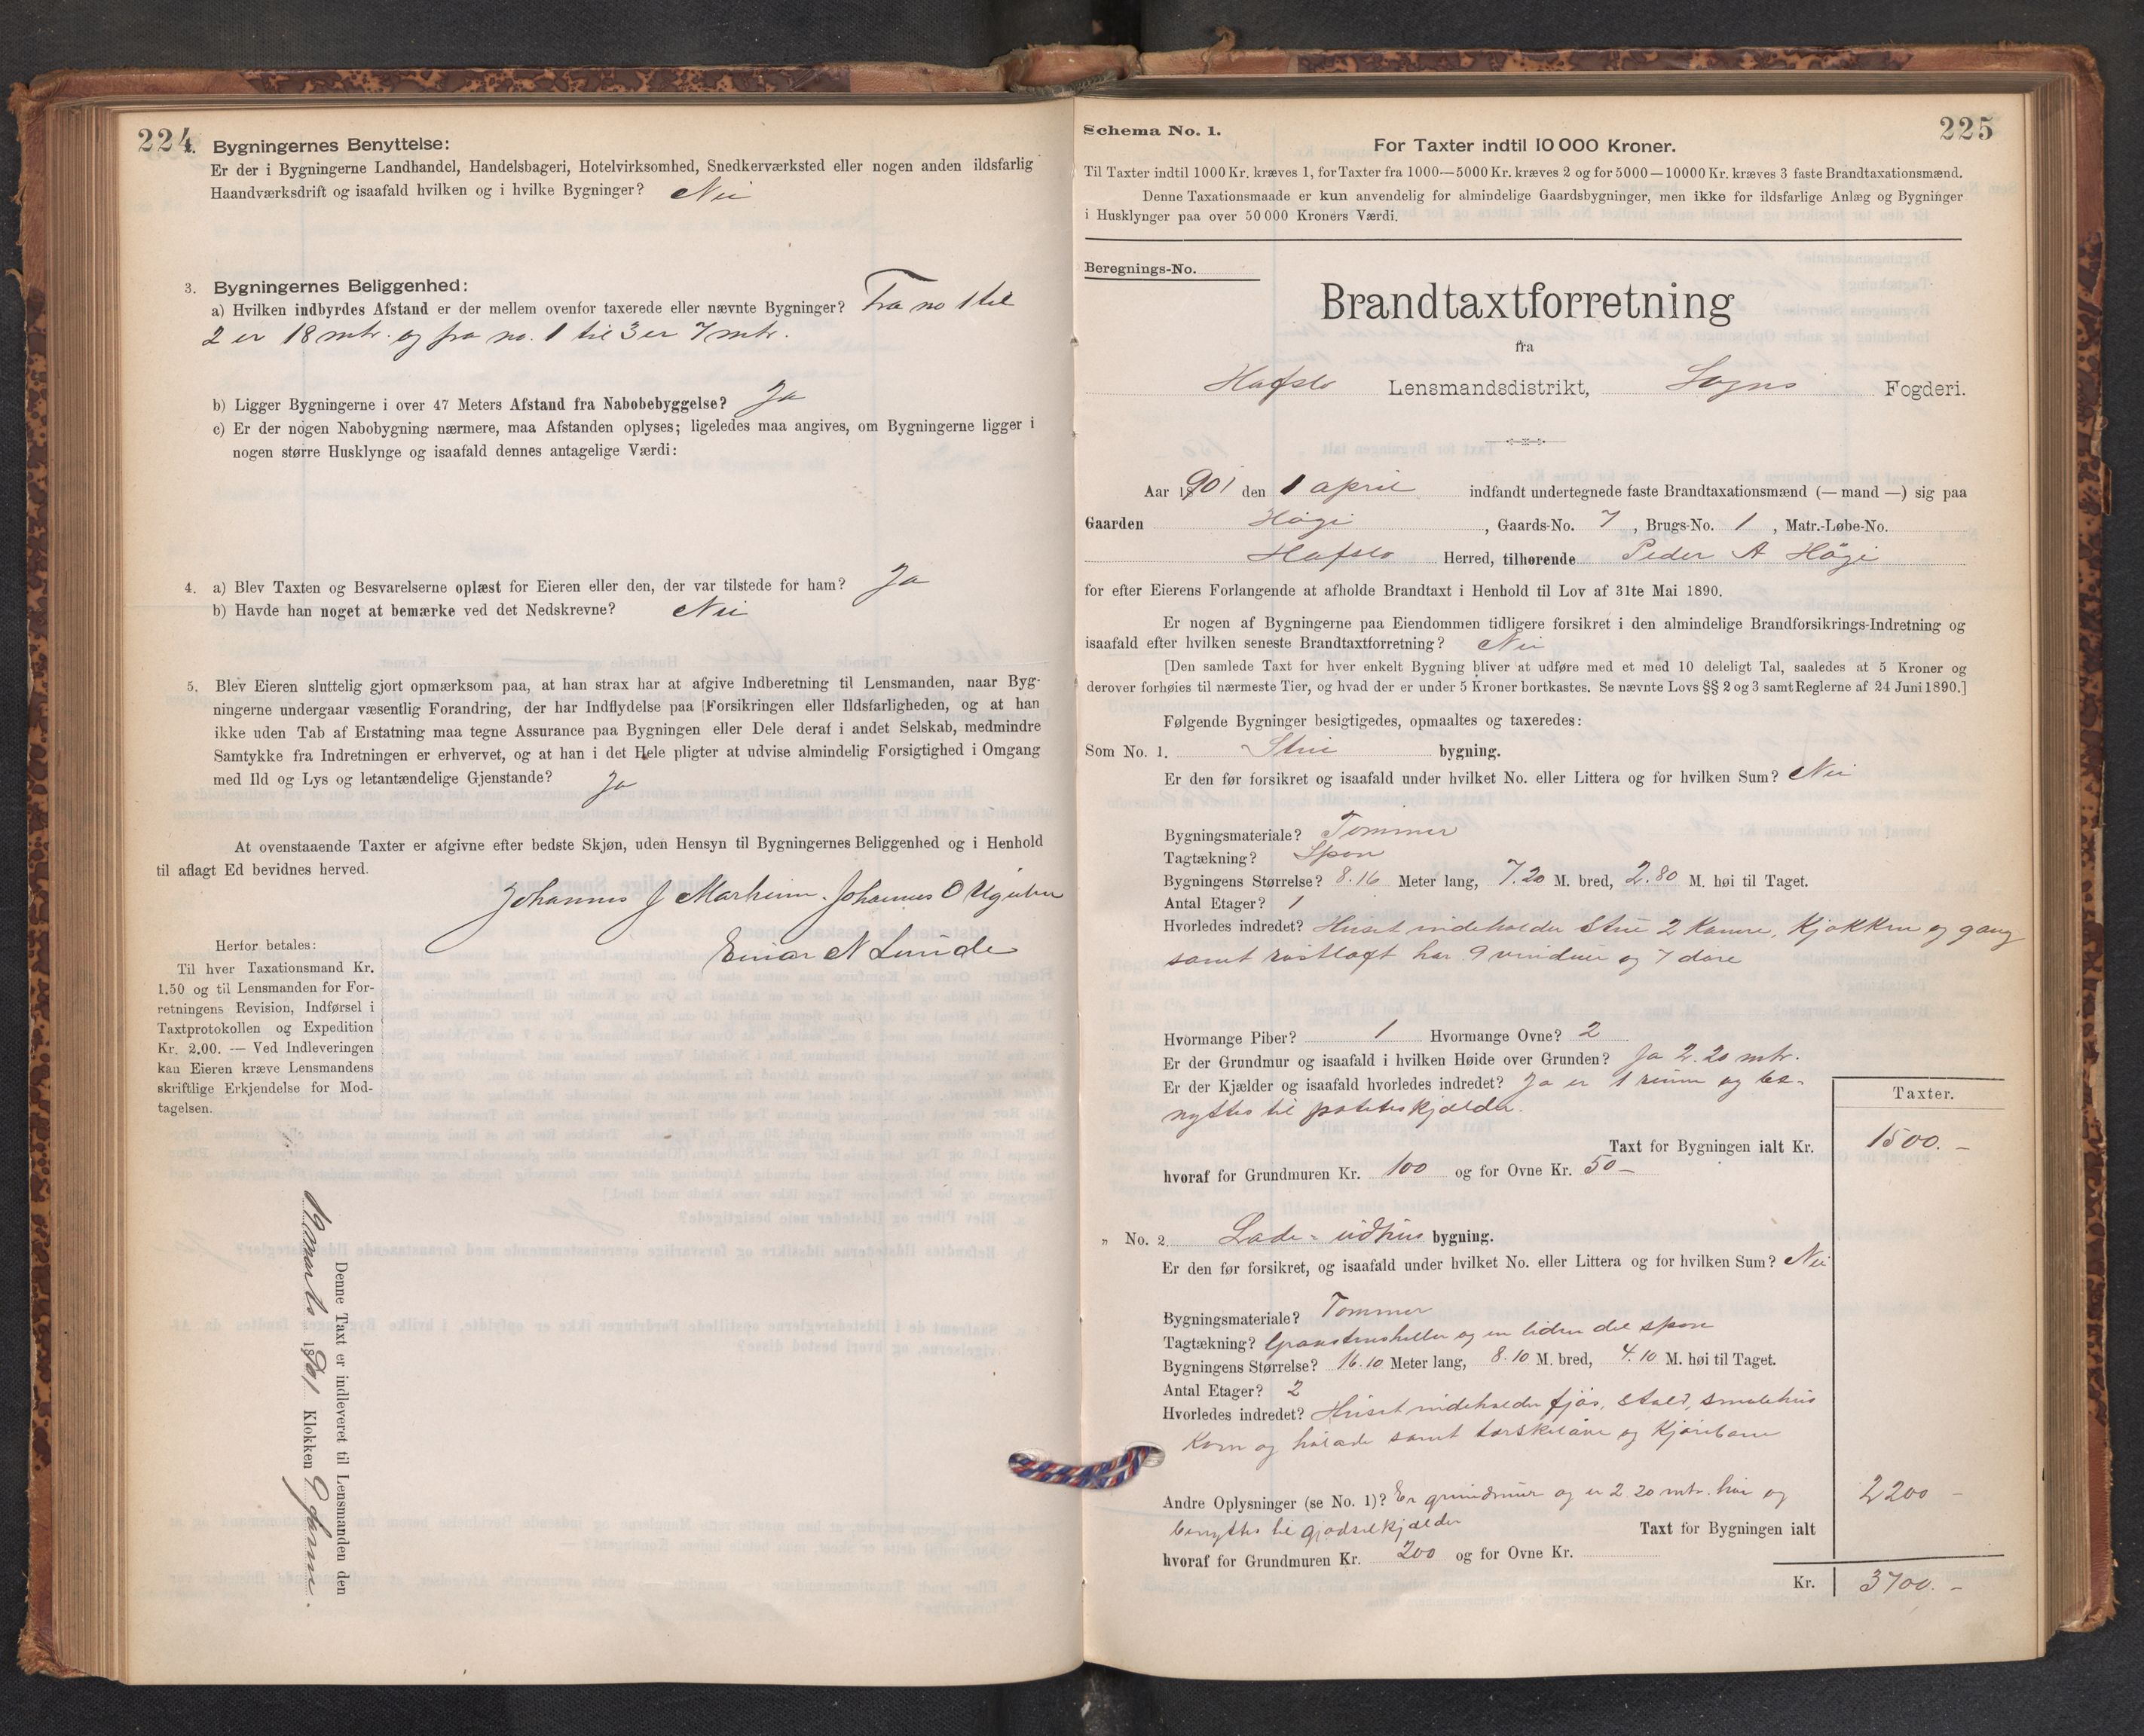 224
2. Bygningernes Benyttelse:
Er der i Bygningerne Landhandel, Handelsbageri, Hotelvirksomhed, Snedkerværksted eller nogen anden ildsfarlig
Haandværksdrift og isaafald hvilken og i hvilke Bygninger? Nei
3. Bygningernes Beliggenhed:
a) Hvilken indbyrdes Afstand er der mellem ovenfor taxerede eller nævnte Bygninger? Fra no 1 til
2 er 18 mtr. og fra no. 1 til 3 er 7 mtr.
b) Ligger Bygningerne i over 47 Meters Afstand fra Nabobebyggelse? Ja
c) Er der nogen Nabobygning nærmere, maa Afstanden oplyses; ligeledes maa angives, om Bygningerne ligger i
nogen større Husklynge og isaafald dennes antagelige Værdi:
4. a) Blev Taxten og Besvarelserne oplæst for Eieren eller den, der var tilstede for ham? Ja
b) Havde han noget at bemærke ved det Nedskrevne? Nei
5. Blev Eieren sluttelig gjort opmærksom paa, at han strax har at afgive Indberetning til Lensmanden, naar Byg-
ningerne undergaar væsentlig Forandring, der har Indflydelse paa [Forsikringen eller Ildsfarligheden, og at han
ikke uden Tab af Erstatning maa tegne Assurance paa Bygningen eller Dele deraf i andet Selskab, medmindre
Samtykke fra Indretningen er erhvervet, og at han i det Hele pligter at udvise almindelig Forsigtighed i Omgang
med Ild og Lys og letantændelige Gjenstande? Ja
At ovenstaaende Taxter er afgivne efter bedste Skjøn, uden Hensyn til Bygningernes Beliggenhed og i Henhold
til aflagt Ed bevidnes herved.
Johannes J Marheim. Johannes O
Einar N Lunde
Herfor betales:
Til hver Taxationsmand Kr.
1.50 og til Lensmanden for For-
retningens Revision, Indførsel i
Taxtprotokollen og Expedition
Kr. 2.00. — Ved Indleveringen
kan Eieren kræve Lensmandens
skriftlige Erkjendelse for Mod-
tagelsen.
Denne Taxt er indleveret til Lensmanden den
marts 1901 Klokken 9 form.
225
Schema No. 1.
For Taxter indtil 10 000 Kroner.
Til Taxter indtil 1000 Kr. kræves 1, for Taxter fra 1000—5000 Kr. kræves 2 og for 5000—10000 Kr. kræves 3 faste Brandtaxationsmænd.
Denne Taxationsmaade er kun anvendelig for almindelige Gaardsbygninger, men ikke for ildsfarlige Anlæg og Bygninger
i Husklynger paa over 50 000 Kroners Værdi.
Beregnings-No.
Brandtaxtforretning
fra
Hafslo Lensmandsdistrikt, Sogns Fogderi.
Aar 1901 den 1 april indfandt undertegnede faste Brandtaxationsmænd (— mand —) sig paa
Gaarden Högi, Gaards-No. 7, Brugs-No. 1, Matr.-Løbe-No.
Hafslo Herred, tilhørende Peder A Högi
for efter Eierens Forlangende at afholde Brandtaxt i Henhold til Lov af 31te Mai 1890.
Er nogen af Bygningerne paa Eiendommen tidligere forsikret i den almindelige Brandforsikrings-Indretning og
isaafald efter hvilken seneste Brandtaxtforretning? Nei
[Den samlede Taxt for hver enkelt Bygning bliver at udføre med et med 10 deleligt Tal, saaledes at 5 Kroner og
derover forhøies til nærmeste Tier, og hvad der er under 5 Kroner bortkastes. Se nævnte Lovs §§ 2 og 3 samt Reglerne af 24 Juni 1890.]
Følgende Bygninger besigtigedes, opmaaltes og taxeredes:
Som No. 1. Stue bygning.
Er den før forsikret og isaafald under hvilket No. eller Littera og for hvilken Sum? Nei
Bygningsmateriale? Tømmer
Tagtækning? Spon
Bygningens Størrelse? 8.16 Meter lang, 7.20 M. bred, 2.80 M. høi til Taget.
Antal Etager? 1
Hvorledes indredet? Huset indeholder Stue 2 Kamre, Kjøkken og gang
samt røstloft har 9 vinduer og 7 døre
Hvormange Piber? 1 Hvormange Ovne? 2
Er der Grundmur og isaafald i hvilken Høide over Grunden? Ja 2.20 mtr.
Er der Kjælder og isaafald hvorledes indredet? Ja er 1 rum og be-
nyttes til potetiskjælder.
Taxter.
Taxt for Bygningen ialt Kr. 1500.—
hvoraf for Grundmuren Kr. 100 og for Ovne Kr. 50—
„ No. 2 Lade-udhus bygning.
Er den før forsikret, og isaafald under hvilket No. eller Littera og for hvilken Sum? Nei
Bygningsmateriale? Tømmer
Tagtækning? og en liden del spon
Bygningens Størrelse? 16.10 Meter lang, 8.10 M. bred, 4.10 M. høi til Taget.
Antal Etager? 2
Hvorledes indredet? Huset indeholder fjøs, stald, smalehus
Korn og hølade samt tørskelåve og Kjørebane
Andre Oplysninger (se No. 1)? Er grundmur og er 2 20 mtr. høi og
benyttes til gjødselkjælder
Taxt for Bygningen ialt 2200 —
hvoraf for Grundmuren Kr. 200 og for Ovne Kr.
Kr. 3700.—